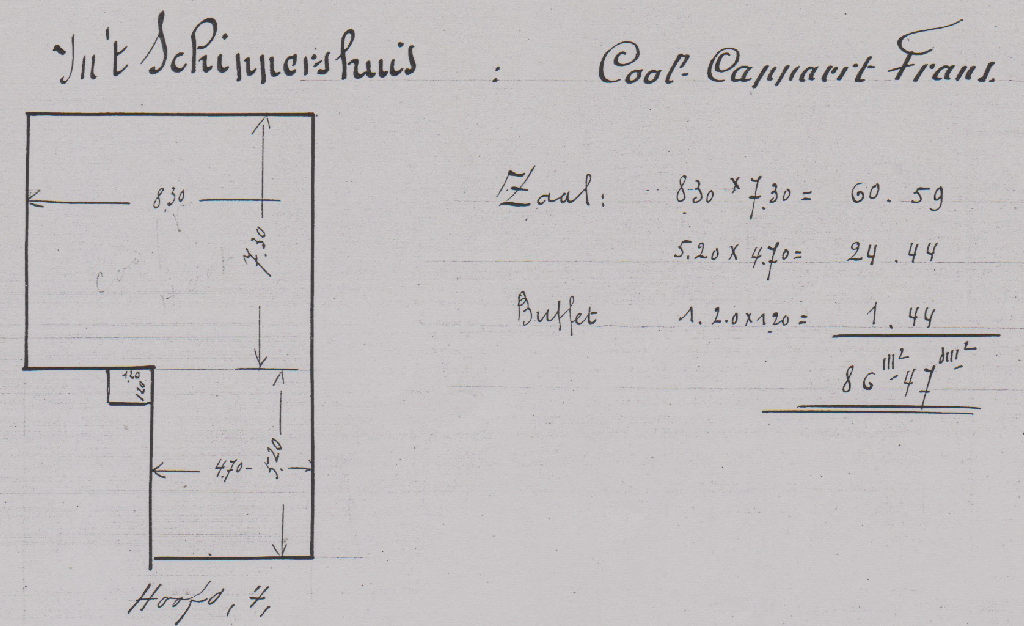 In't Schippershuis : Cool-Cappaert Frans.
8.30
7.30
Zaal: 8.30 x 7.30 = 60.59
5.20 x 4.70 = 24.44
Buffet 1.20 x 1.20 = 1.44
86 m² 47 dm²
1.20
1.20
4.70
5.20
Hoofd, 4,